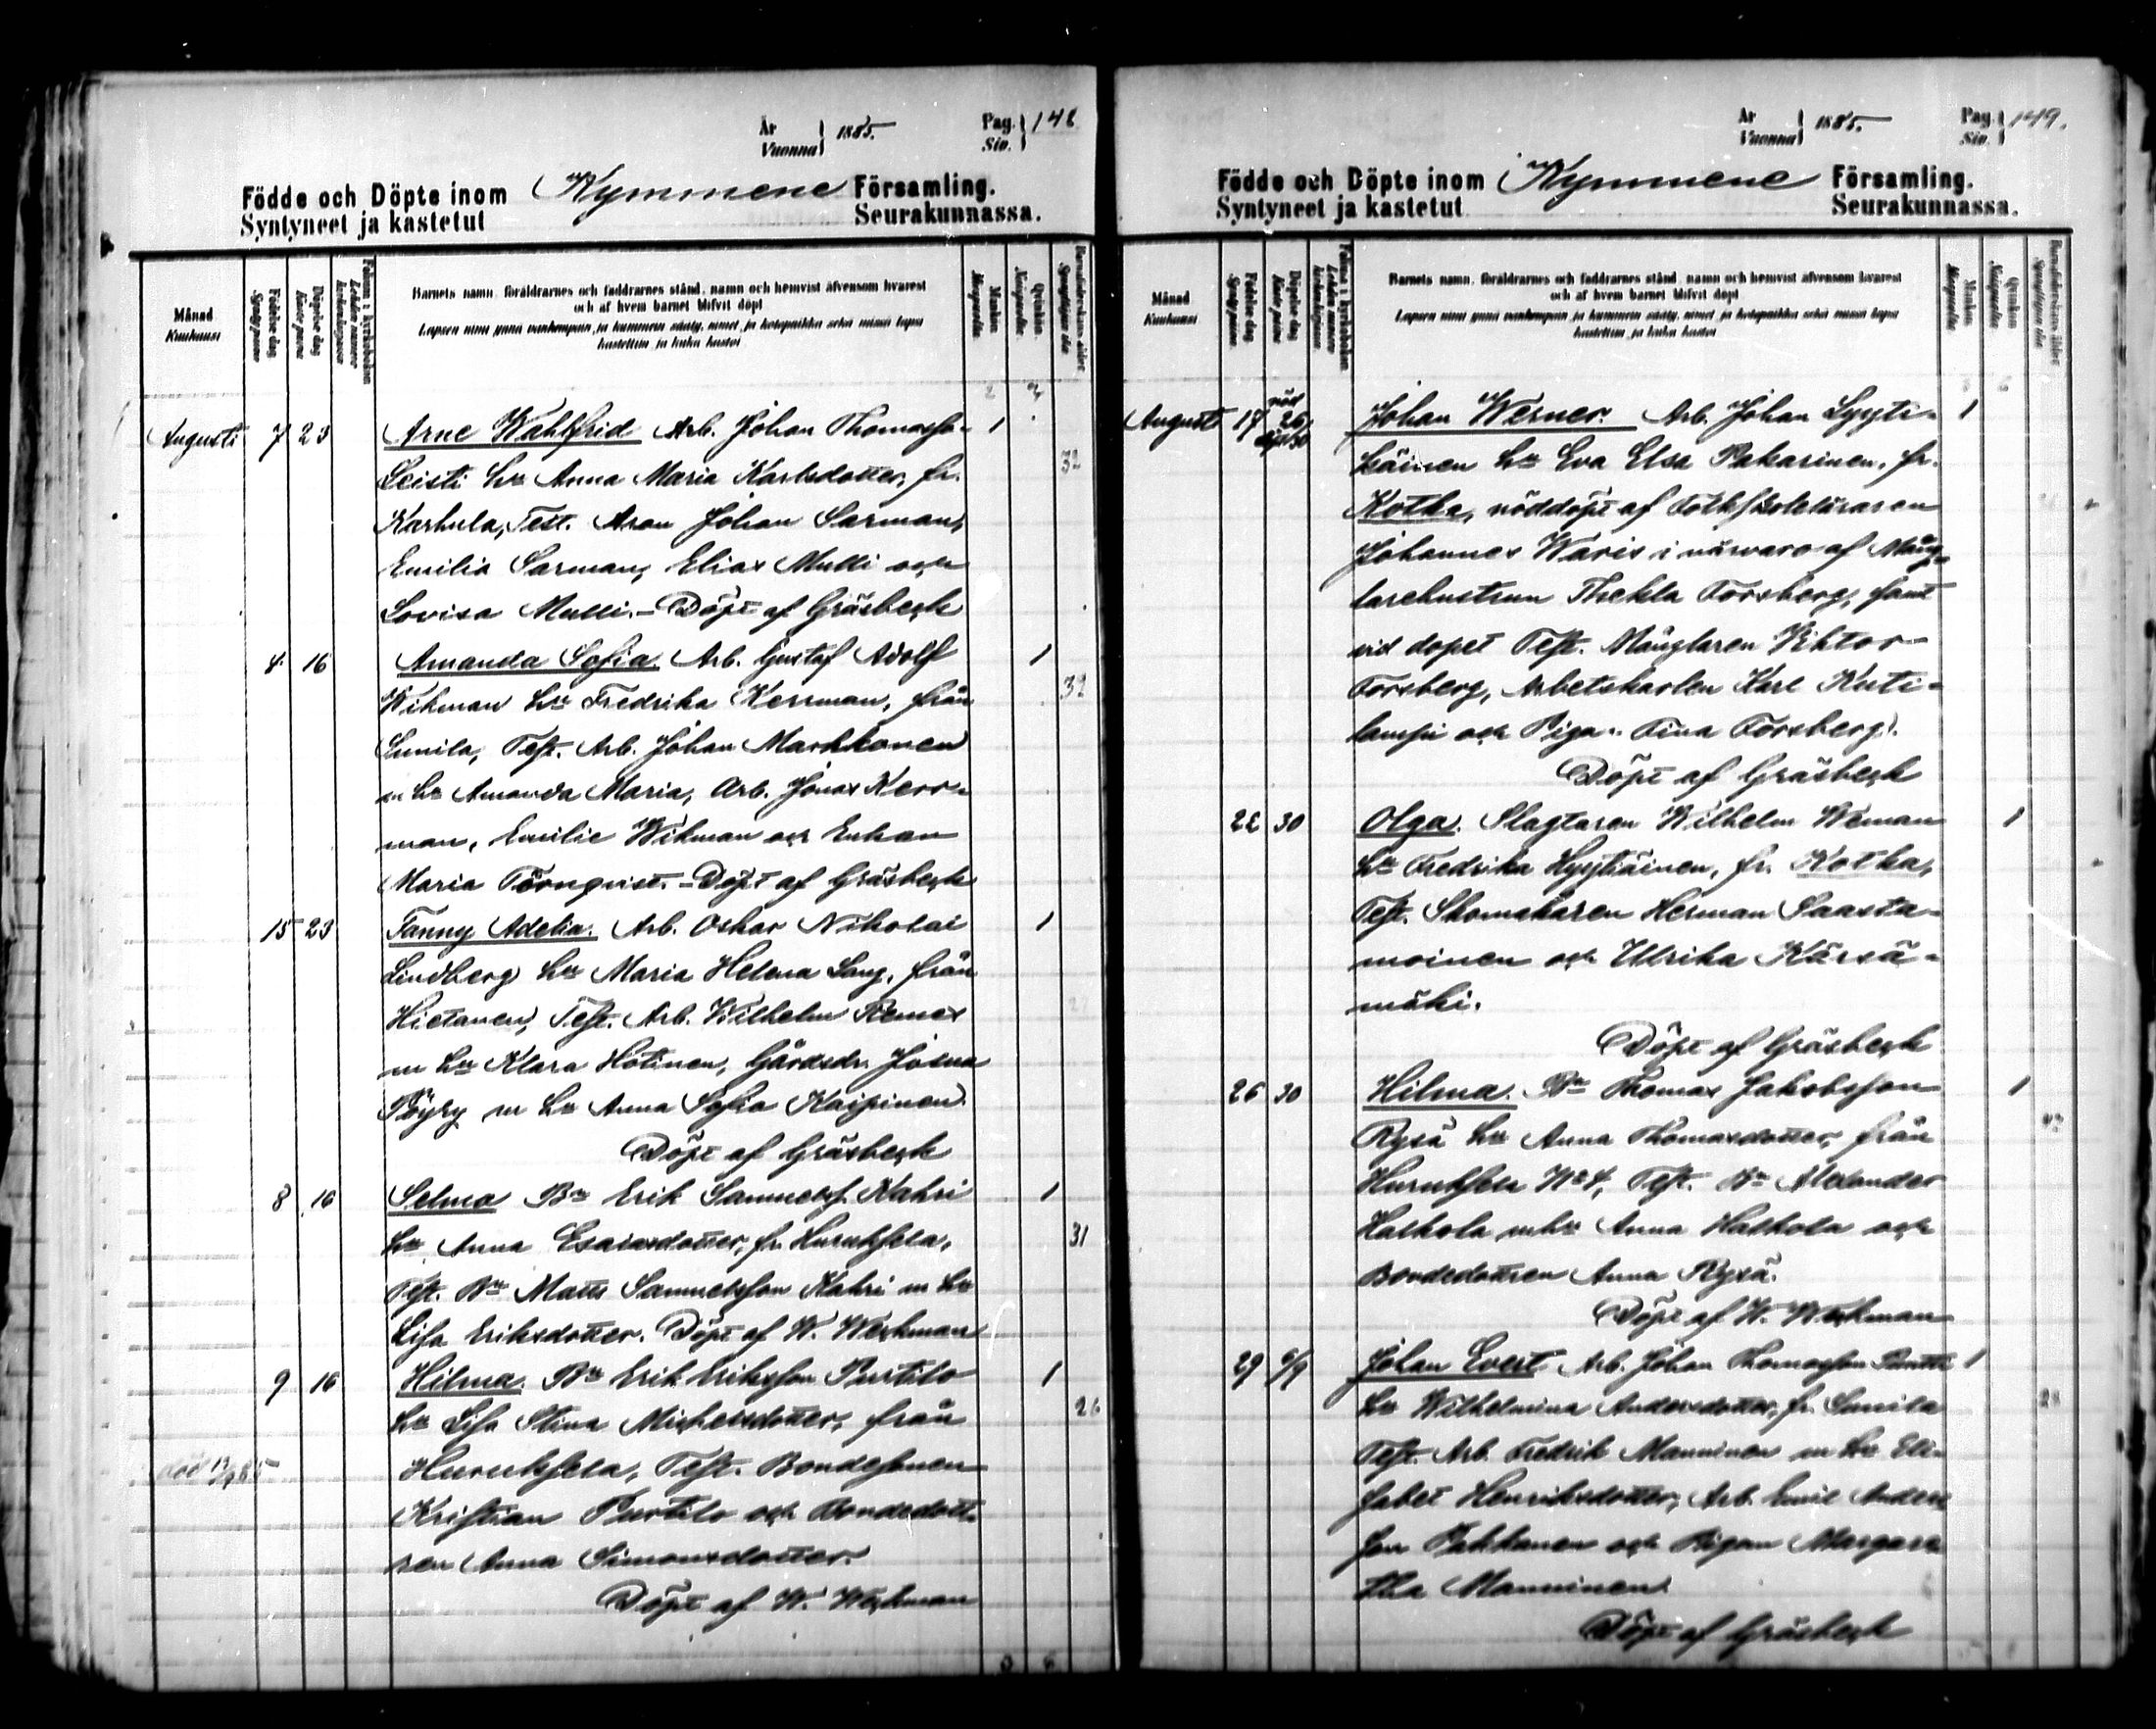 År
Vuonna 1885.
Pag.
Siv. 148
Födde och Döpte inom Kymmene Församling.
Syntyneet ja kastetut Seurakunnassa.
Månad
Kuukausi
Födelse dag
Syntypäivä
Döpelse dag
Kastepäivä
Barnets namn, föräldrarnes och faddrarnes stånd, namn och hemvist äfvensom hvarest
och af hvem barnet blifvit döpt
Lapsen nimi ynnä vanhempain ja kummein sääty, nimet ja kotopaikka sekä missä lapsi
kastettiin ja kuka kastoi
Mankön
Miespuolia
Qvinkön
Naispuolia
Augusti 7 23 Arne Wahlfrid Arb. Johan Thomasso- 1
Leisti hu Anna Maria Karlsdotter, fr. 32
Karhula, Test. Johan Sarman,
Emilia Sarman, Elias Mulli och
Lovisa Mulli. - Döpt af Gräsbeck
4 16 Amanda Sofia. Arb. Gustaf Adolf 1
Wikman hu Fredrika Kerrman, från 32
Sunila, Test. Arb. Johan Markkonen
m hu Amanda Maria, Arb. Jonas Kerr-
man, Emilie Wikman och Enkan
Maria Törnqvist. - Döpt af Gräsbeck
15 23 Fanny Adelia. Arb. Oskar Nikolai 1
Lindberg hu Maria Helena Lang, från
Hietanen, Test. Arb. Wilhelm Remes
m hu Klara Hotinen, Gårdsdr. Josua
Pöyry m hu Anna Sofia Kaipinen.
Döpt af Gräsbeck
8 16 Selma Bn Erik Samuelsf. Kahri 1
hu Anna Esaiasdotter, fr. Hurukfela, 31
Test. Bn Matts Samuelsson Kahri m hu
Lisa Eriksdotter. Döpt af W. Weckman
9 16 Hilma. Bn Erik Eriksson Purtilo 1
hu Lisa Stina Michelsdotter, från 26
Hurukfela, Test. Bondesonen
död 85
Kristian Purtilo och Bondedott-
ren Anna Simonsdotter.
Döpt af W. Weckman
År
Vuonna 1885.
Pag.
Siv. 149.
Födde och Döpte inom Kymmene Församling.
Syntyneet ja kastetut Seurakunnassa.
Månad
Kuukausi
Födelse dag
Syntypäivä
Döpelse dag
Kastepäivä
Barnets namn, föräldrarnes och faddrarnes stånd, namn och hemvist äfvensom hvarest
och af hvem barnet blifvit döpt
Lapsen nimi ynnä vanhempain ja kummein sääty, nimet ja kotopaikka sekä missä lapsi
kastettiin ja kuka kastoi
Mankön
Miespuolia
Qvinkön
Naispuolia
Augusti 17 nöd 26, döpt 30 Johan Werner. Arb. Johan Lyyti- 1
käinen hu Eva Elsa Pakarinen, fr.
Kotka, nöddöpt af Folkskoleläraren
Johannes Waris i närvaro af Mång-
larehustrun Thekla Forsberg, samt
vid dopet Test. Månglaren Viktor
Forsberg, Arbetskarlen Karl Kuti-
lampi och Piga: Fina Forsberg.
Döpt af Gräsbeck
22 30 Olga. Slagtaren Wilhelm Weman 1
hu Fredrika Hyytiäinen, fr. Kotka,
Test. Skomakaren Herman Saasta-
moinen och Ulrika Kärsä-
mäki.
Döpt af Gräsbeck
26 30 Hilma. Bn Thomas Jakobsson 1
Rysä hu Anna Thomasdotter, från
Hurukfela No 4, Test. Bn Alexander
Halkola m hu Anna Halkola och
Bondedottren Anna Rysä.
Döpt af W. Weckman
29 6/9 Johan Evert Arb. Johan Thomasson 1
hu Wilhelmina Andersdotter, fr. Sunila 28
Test. Arb. Fredrik Manninen m hu Eli-
sabet Henriksdotter, Arb. Emil Anders
son Pakkanen och Pigan Margare
tha Manninen.
Döpt af Gräsbeck